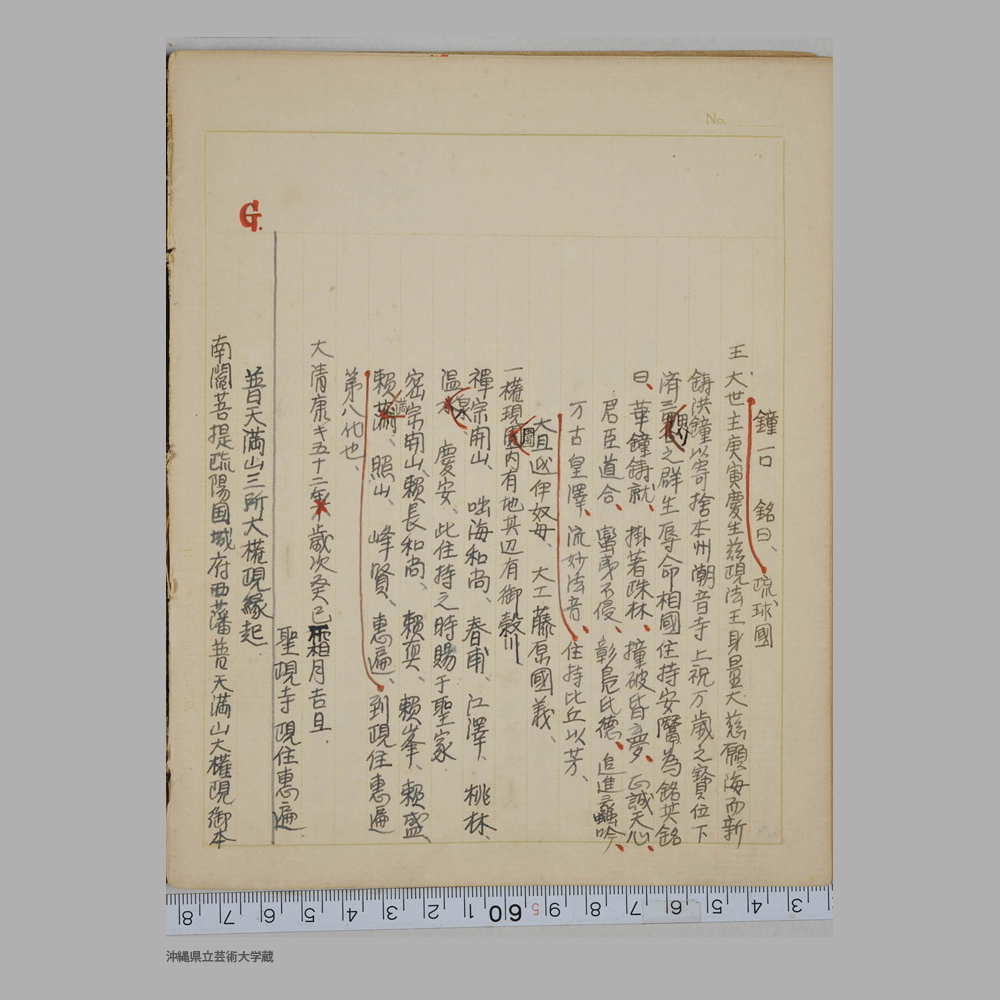 No.
鐘一口 銘曰、琉球國
王 大世主庚寅慶生茲現法王身量大慈願海而新
鋳洪鐘以寄捨本州潮音寺上祝万歳之寶位下
済界之群生辱命相國住持安潛為銘其銘
曰、華鐘鋳就、掛著珠林、撞破昏夢、正誠天心、
君臣道合、蛮夷不侵、彰鳧氏徳、追進蠡吟、
万古皇澤、流妙法音、住持比丘以芳、
大旦 伊奴每、大工藤原國義、
一権現園内有地其辺有御穀川、
禅宗開山、咄海和尚、春甫、江澤、桃林、
温泉、慶安、此住持之時賜于聖家
密宗開山、頼長和尚、頼與、頼峯、頼盛、
頼滿、照山、峰賢、恵遍、到現住恵遍
第八代也、
大清康キ五十二年歳次癸巳霜月吉旦.
聖現寺現住恵遍
G.
普天満山三所大権現縁起
南閻菩提琉陽国城府西藩普天満山大権現御本
8 7 6 5 4 3 2 1 60 5 9 8 7 6 5 4 3
沖縄県立芸術大学蔵